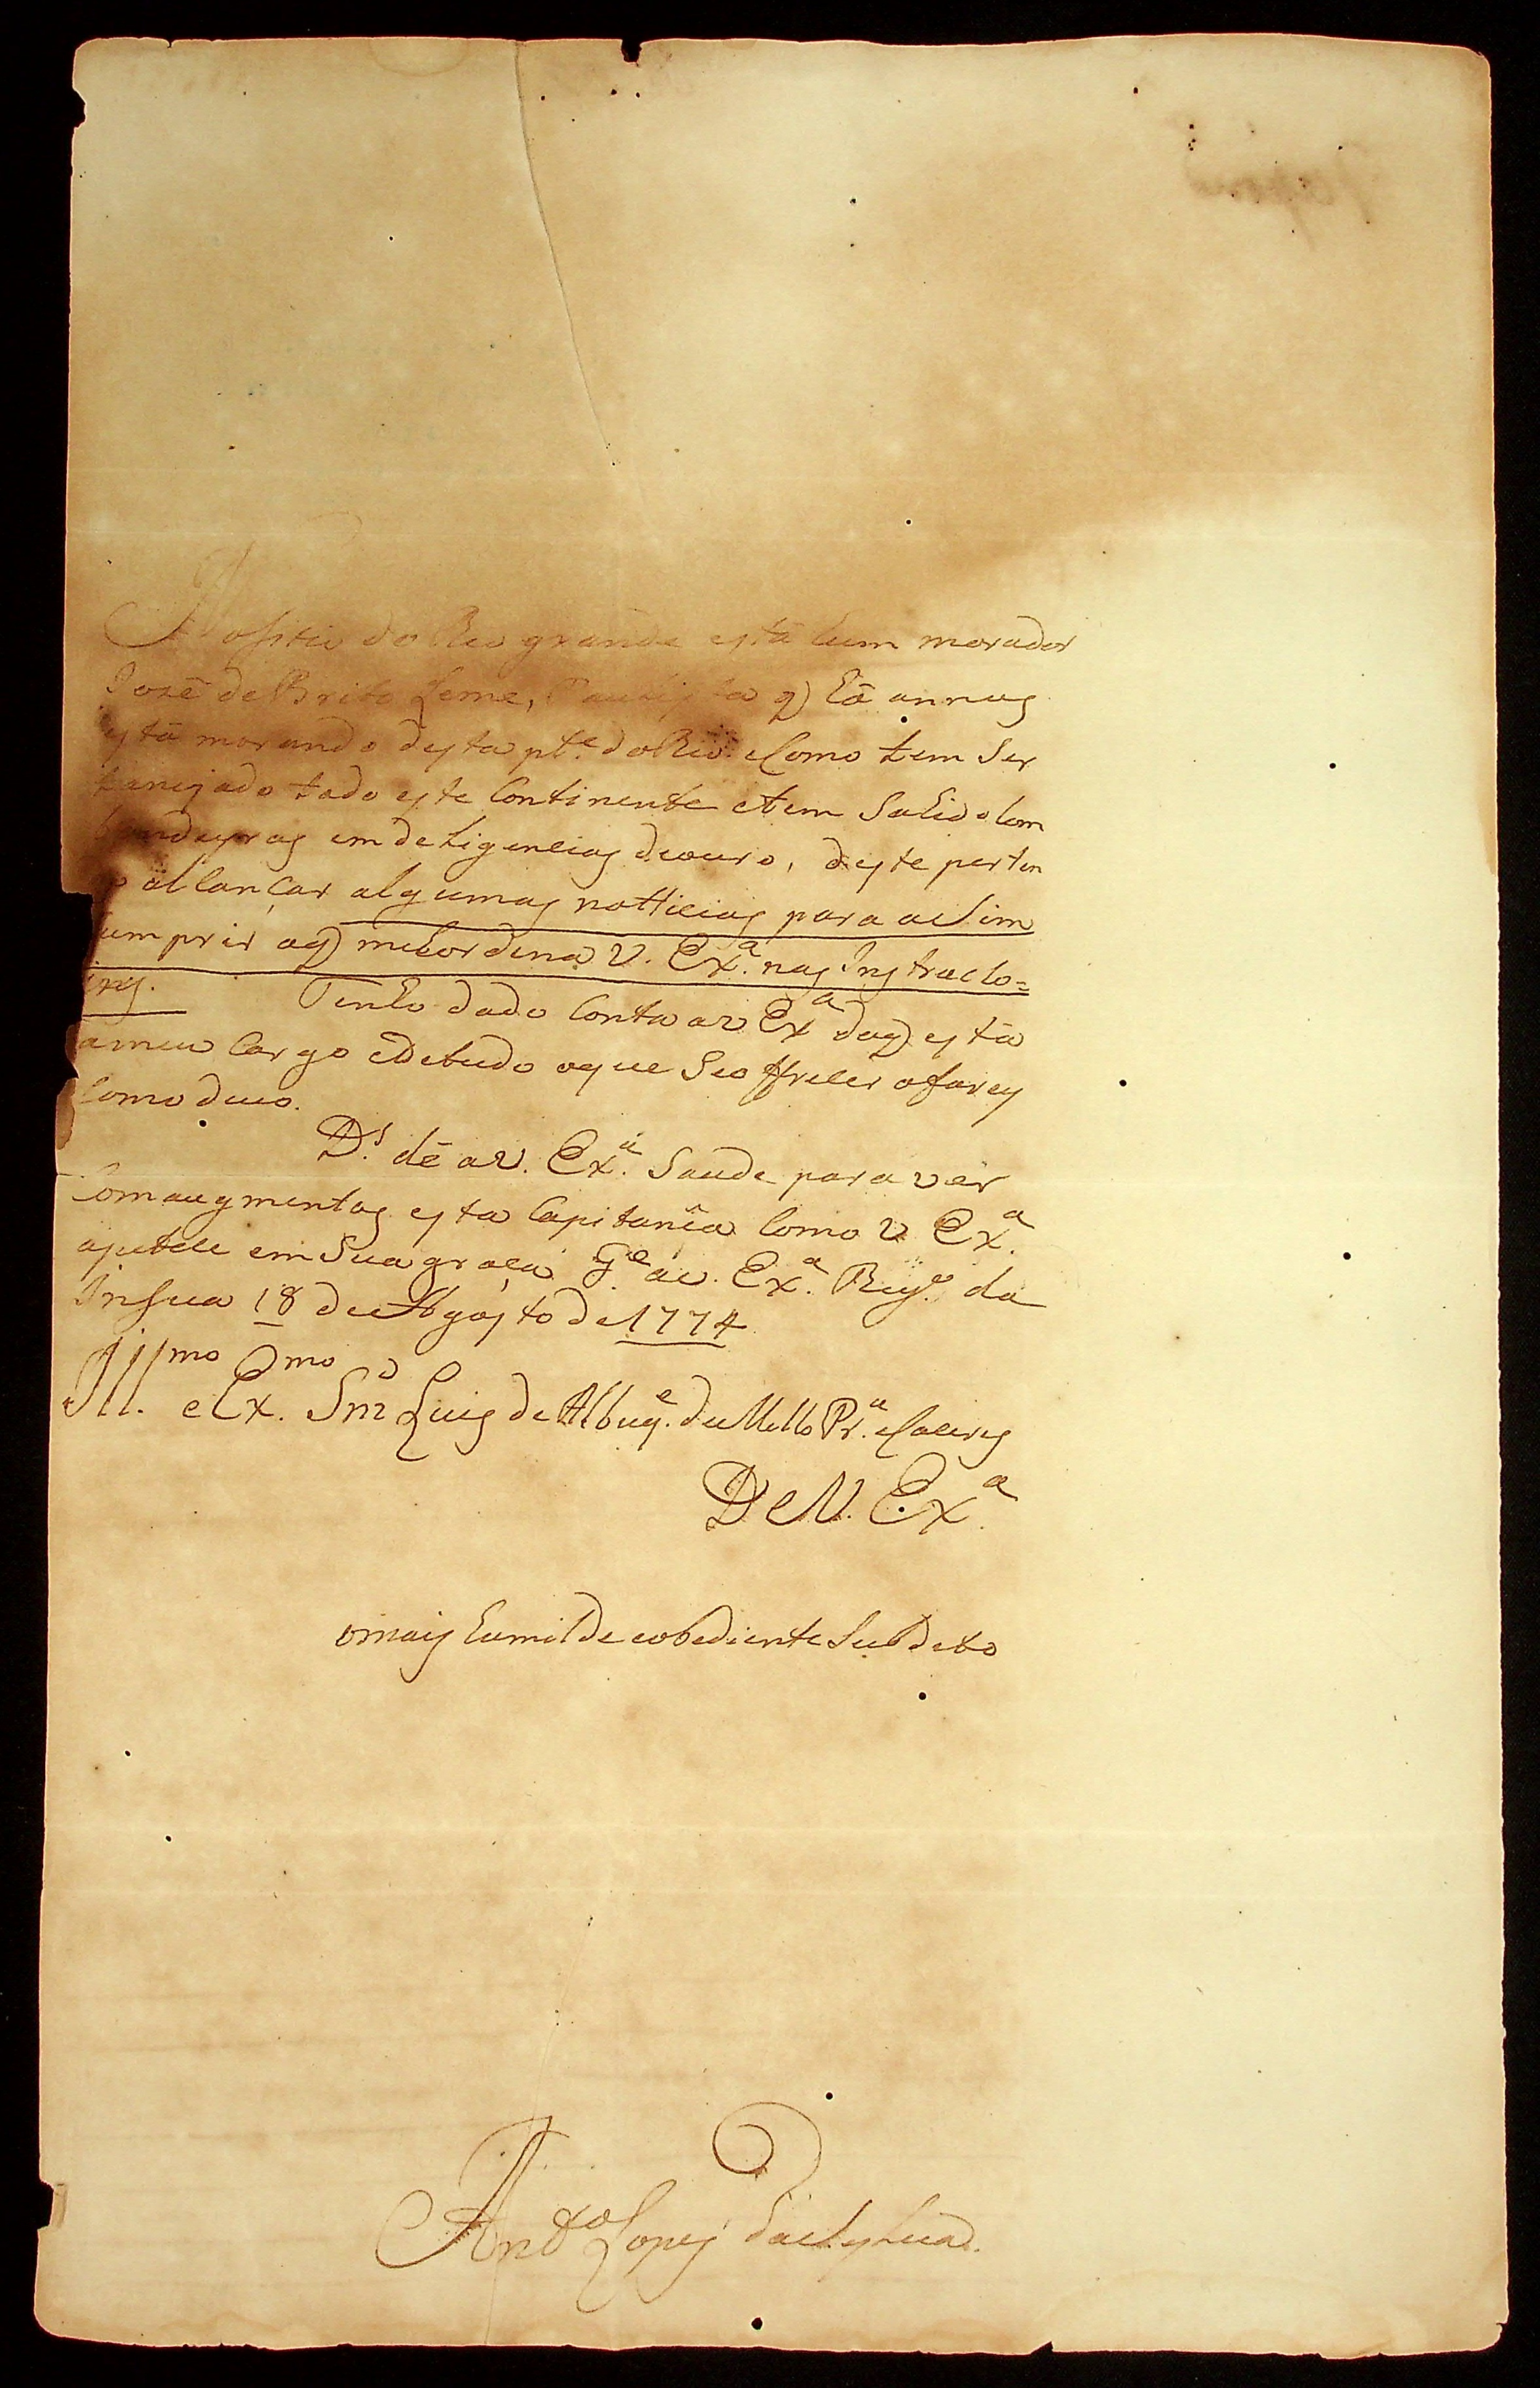 No sitio do Rio grande está hum morador
José de Brito Leme, Paulista q) há annos
está morando desta pt.e do Rio. e Como tem Ser
tanejado todo este Continente e tem Sahido Com
bandeyras em deligencias de ouro, deste perten
do allançar algumas notticias para assim
Cumprir oq) me hordena V. Ex.a nas Instrucio=
ins. Tenho dado Conta a V Ex.a do q) está
a meu Cargo e De tudo o que Se offrecer o farey
Como devo.
D.s dê a V. Ex.a Saude para ver
Com augmentos esta Capitania Como V Ex.a
apetece em Sua graça. G.e a V. Ex.a Reg.o da
Insua 18 de Agosto de 1774
Ill.mo e Ex.mo Snr Luis de Albuq.e de Mello Pr.a e Caceres
De V. Ex.a
o mais humilde e obediente Subdito
Ant.o Lopes